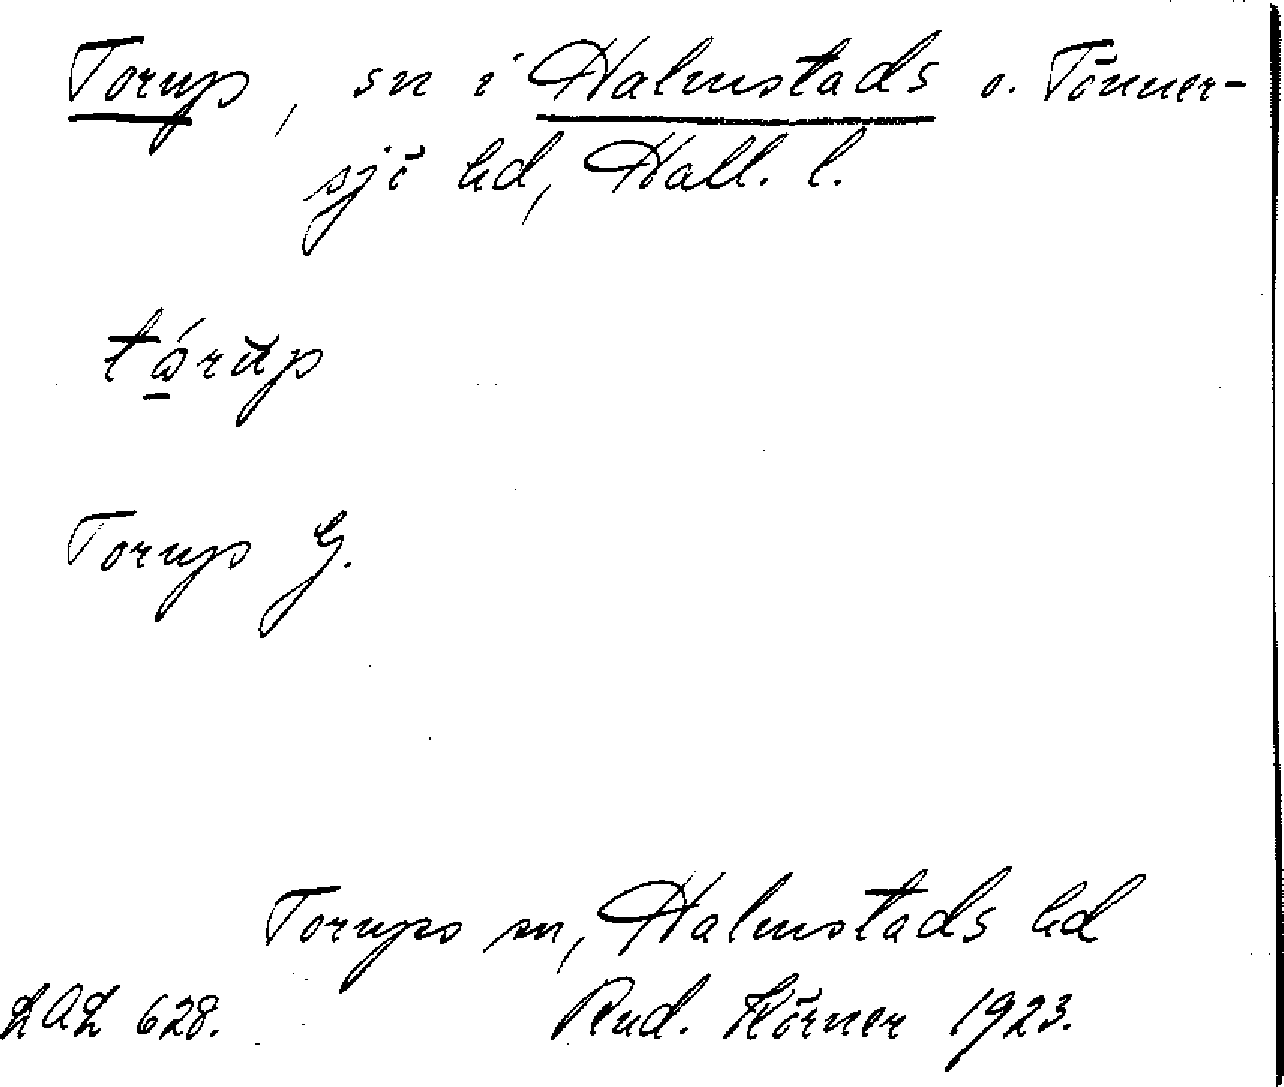 Torup, sn i Halmstads o. Tönner-
sjö hd, Hall. l.
tórup
Torup G.
Torups sn, Halmstads hd
LAL 628. Rud. Körner 1923.